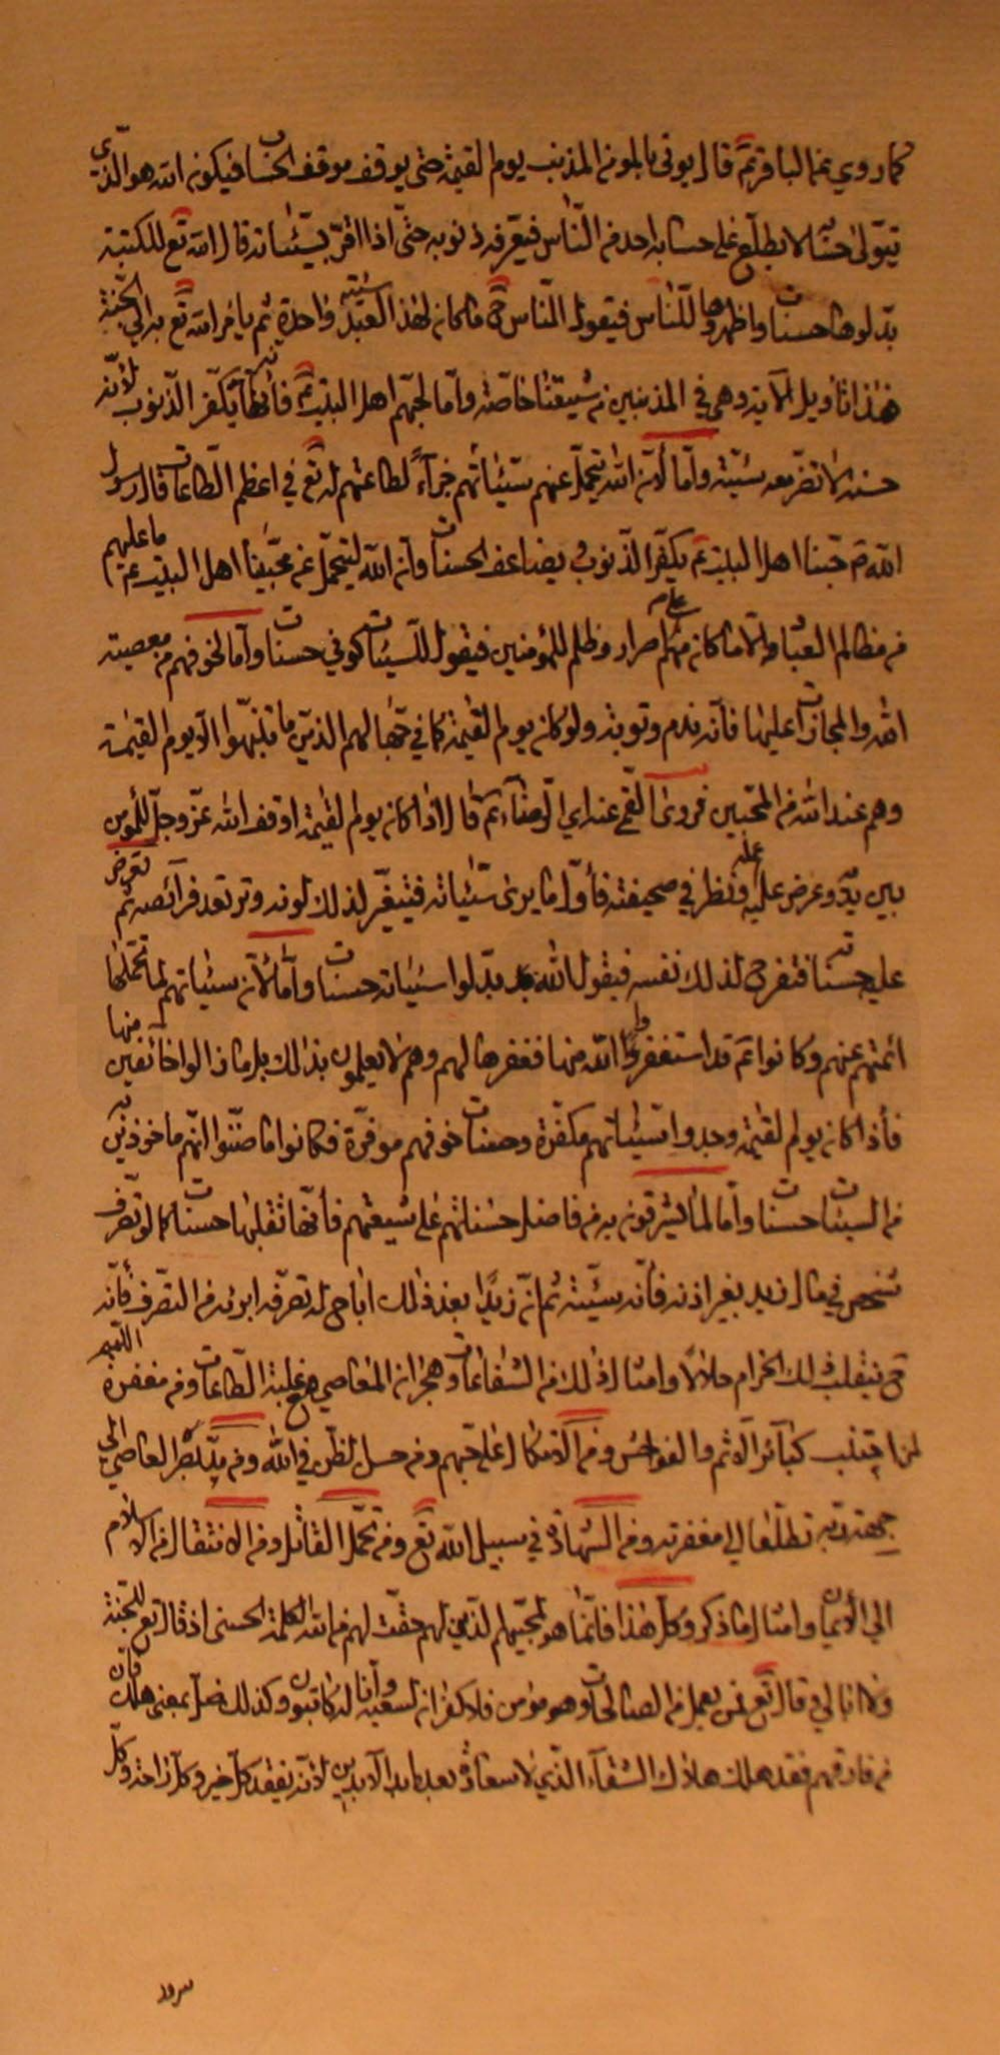 كما روي عن الباقر ع قال يوتى بالمومن المذنب يوم القيمة حتى يوقف موقف الحساب فيكون الله هو الذي
يتولى حسابه لا يطلع على حسابه احد من الناس فيعرفه ذنوبه حتى اذا اقر بسيئاته قال الله تع للكتبة
بدلوها حسنات واظهروها للناس فيقول الناس ح ما كان لهذا العبد سيئة واحدة ثم يامر الله تع به الى الجنة
هذا تاويل الاية وهي في المذنبين من شيعتنا خاصة واما لحبهم اهل البيت ع فانه يكفر الذنوب لانه
حسنة لا تضر معه سيئة واما لان الله يتحمل عنهم سيئاتهم جزآءً لطاعتهم له تع في اعظم الطاعات قال رسول
الله ص حبنا اهل البيت ع يكفر الذنوب ويضاعف الحسنات وان الله ليتحمل عن محبينا اهل البيت ع ما عليهم
من مظالم العباد الا ما كان منهم على اصرار وظلم للمؤمنين فيقول للسيئات كوني حسنات واما لخوفهم من معصية
الله والمجازات عليها فانه ندم وتوبة ولو كان يوم القيمة كما في جهالهم الذين ما تنبهوا الا يوم القيمة
وهم عند الله من المحبين فروى القمي عن الرضا ع قال اذا كان يوم القيمة اوقف الله عز وجل المومن
بين يديه وعرض عليه عمله فنظر في صحيفته فاول ما يرى سيئاته فيتغير لذلك لونه وترتعد فرآئصه ثم تعرض
عليه حسناته فتفرح لذلك نفسه فيقول الله بدلوا سيئاته حسنات واما لان سيئاتهم لما تحملها
ائمتهم عنهم وكانوا ع قد استغفروا الله منها فغفرها لهم وهم لا يعلمون بذلك بل ما زالوا خائفين منها
فاذا كان يوم القيمة وجدوا سيئاتهم مكفرة وحسنات خوفهم موفرة فكانوا ما ظنوا انهم ماخوذين به
من السيئات حسنات واما لما يشرقون به من فاضل حسناتهم على شيعتهم فانها تقلبها حسنات كما لو تصرف
شخص في مال زيد بغير اذنه فانه سيئة ثم ان زيدا بعد ذلك اباح له تصرفه ابوئه من التصرف فانه
ح ينقلب ذلك الحرام حلالا وامثال ذلك من الشفاعات وهجران المعاصي مع غلبة الطاعات ومن مغفرة اللمم
لمن اجتنب كبآئر الاثم والفواحش ومن الاتكال على حبهم ومن حسن الظن في الله ومن نظر العاصي الى
جهة ربه تطلعا الى مغفرته ومن الشهادة في سبيل الله تع ومن تحمل القاتل ومن الانتقال من الاسلام
الى الايمان وامثال ما ذكر وكل هذا فانما هو لمحبيهم الذين لهم حقت لهم من الله الكلمة الحسنى اذ قال تع للجنة
ولا ابالي قال تع فمن يعمل من الصالحات وهو مؤمن فلا كفران لسعيه وانا له كاتبون وكذلك ضل بمعنى هلك فان
من فارقهم فقد هلك هلاك الشقآء الذي لا سعادة بعده ابد الابدين لانه يفقد كل خير وكل راحة وكل
سرور